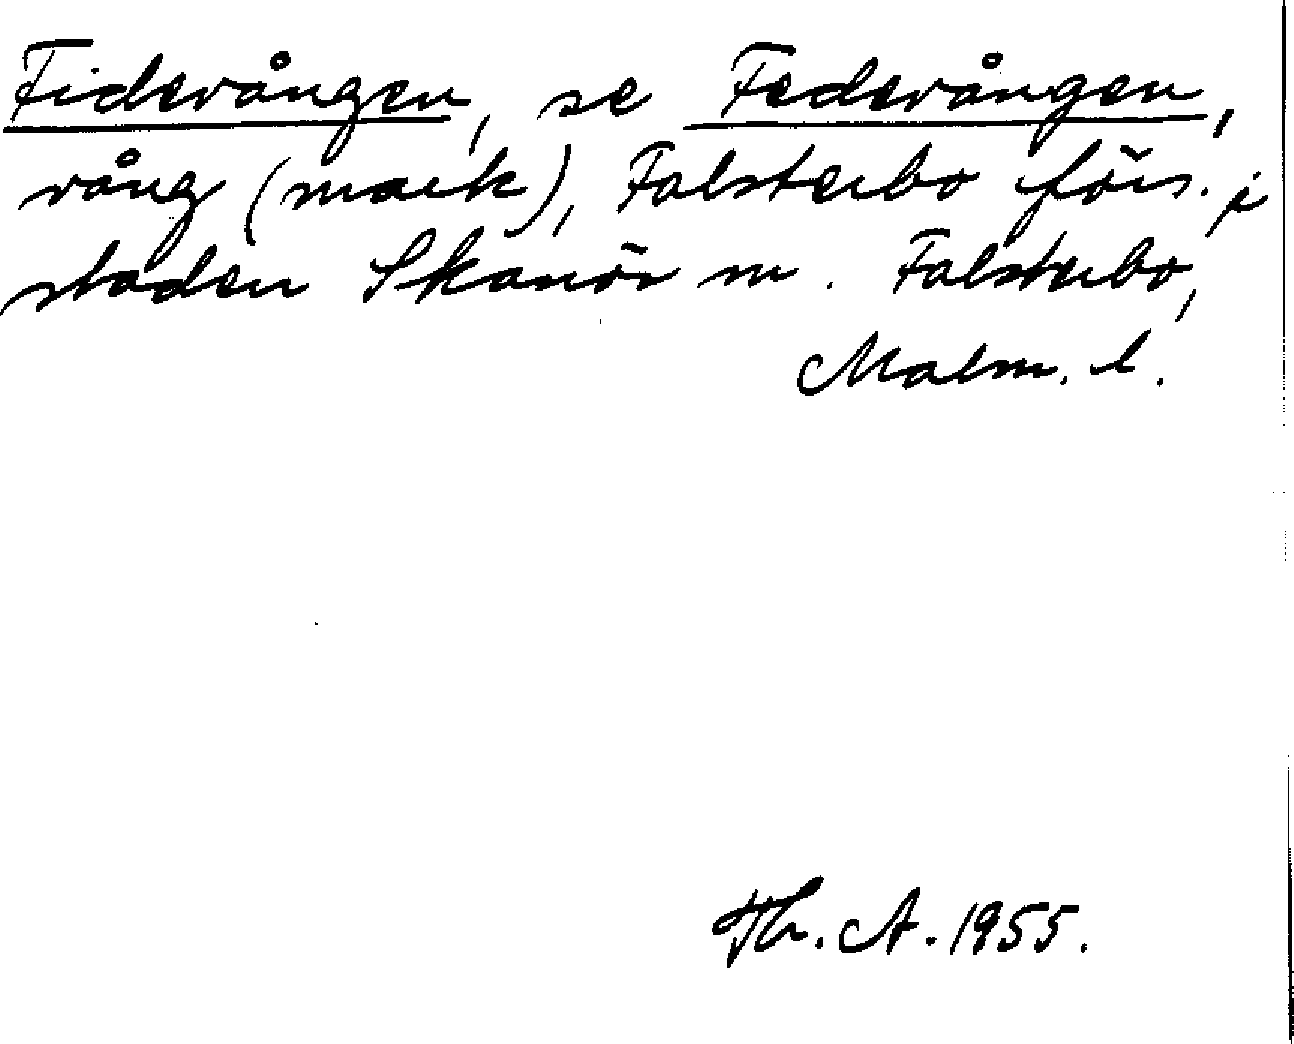 Fidevången, se Fedevången,
vång (mark), Falsterbo förs. i
staden Skanör m. Falsterbo,
Malm. l.
Th. A. 1955.